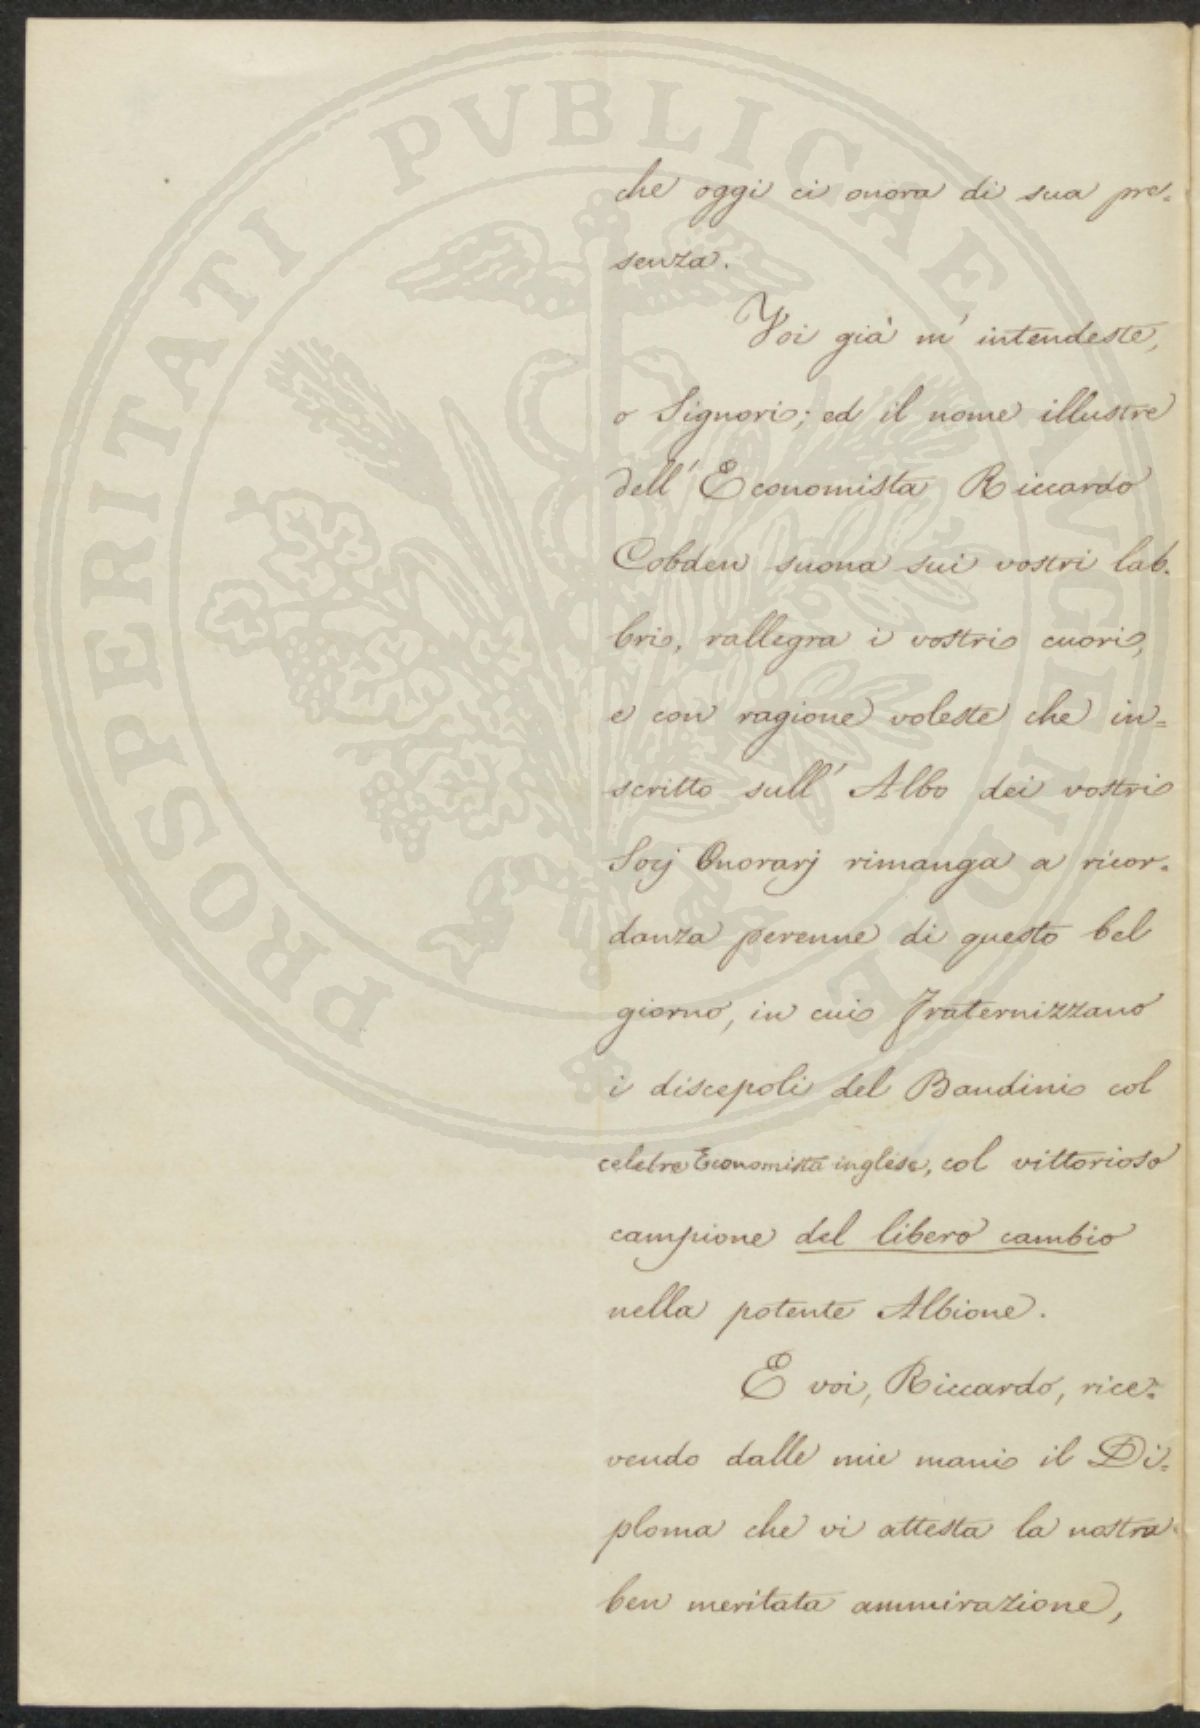 PROSPERITATI PVBLICAE AVGENDAE
che oggi ci onora di sua pre=
senza.
Voi già m' intendeste,
o Signori; ed il nome illustre
dell' Economista Riccardo
Cobden suona sui vostri lab=
bri, rallegra i vostri cuori,
e con ragione voleste che in=
scritto sull' Albo dei vostri
Socj Onorarj rimanga a ricor=
danza perenne di questo bel
giorno, in cui fraternizzano
i discepoli del Bandini col
celebre Economista inglese, col vittorioso
campione del libero cambio
nella potente Albione.
E voi, Riccardo, rice=
vendo dalle mie mani il Di=
ploma che vi attesta la nostra
ben meritata ammirazione,